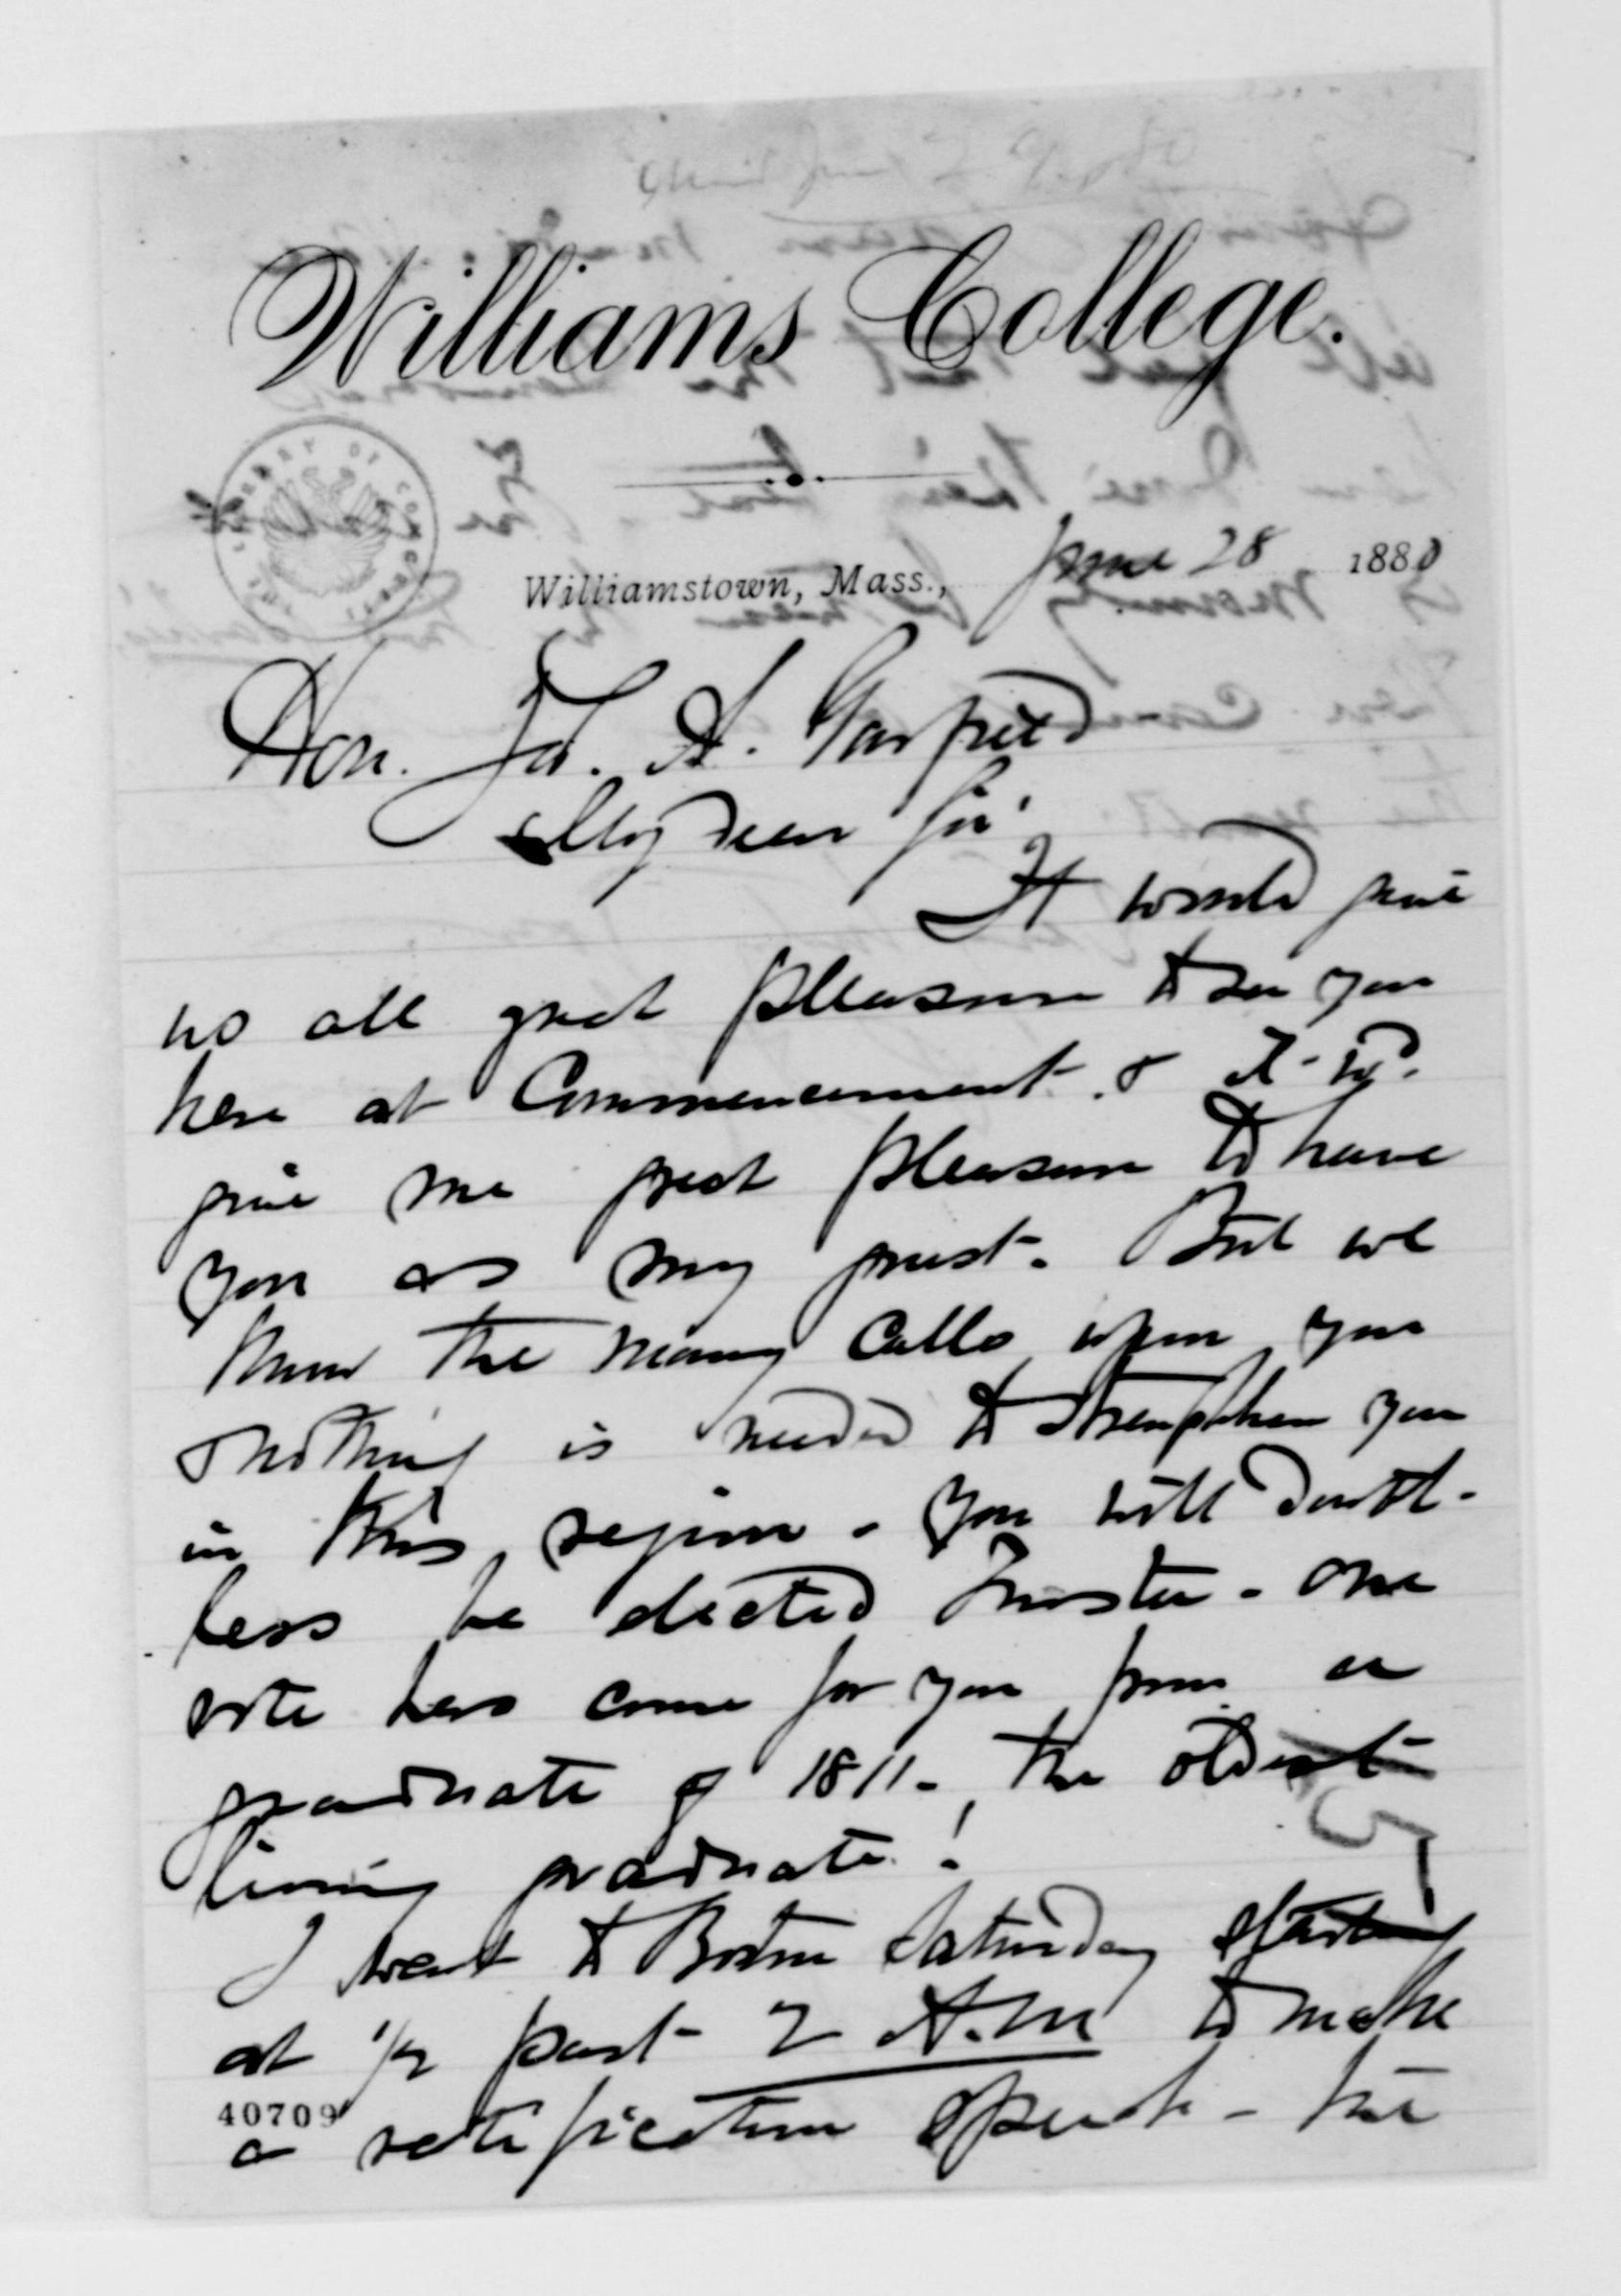 Williams College.
Williamstown, Mass., June 28 1880
Hon. Ja. A. Garfield
My dear Sir:
It would give
us all great pleasure to see you
here at Commencement. & it wd.
give me great pleasure to have
you as my guest. But we
know the many calls upon you
& nothing is needed to strengthen you
in this region. You will doubt-
less be elected Trustee - one
vote has come for you from a
graduate of 1811 - the oldest
living graduate!
I went to Boston Saturday starting
at 1/2 past 2 A.M to make
40709
a ratification speech - the